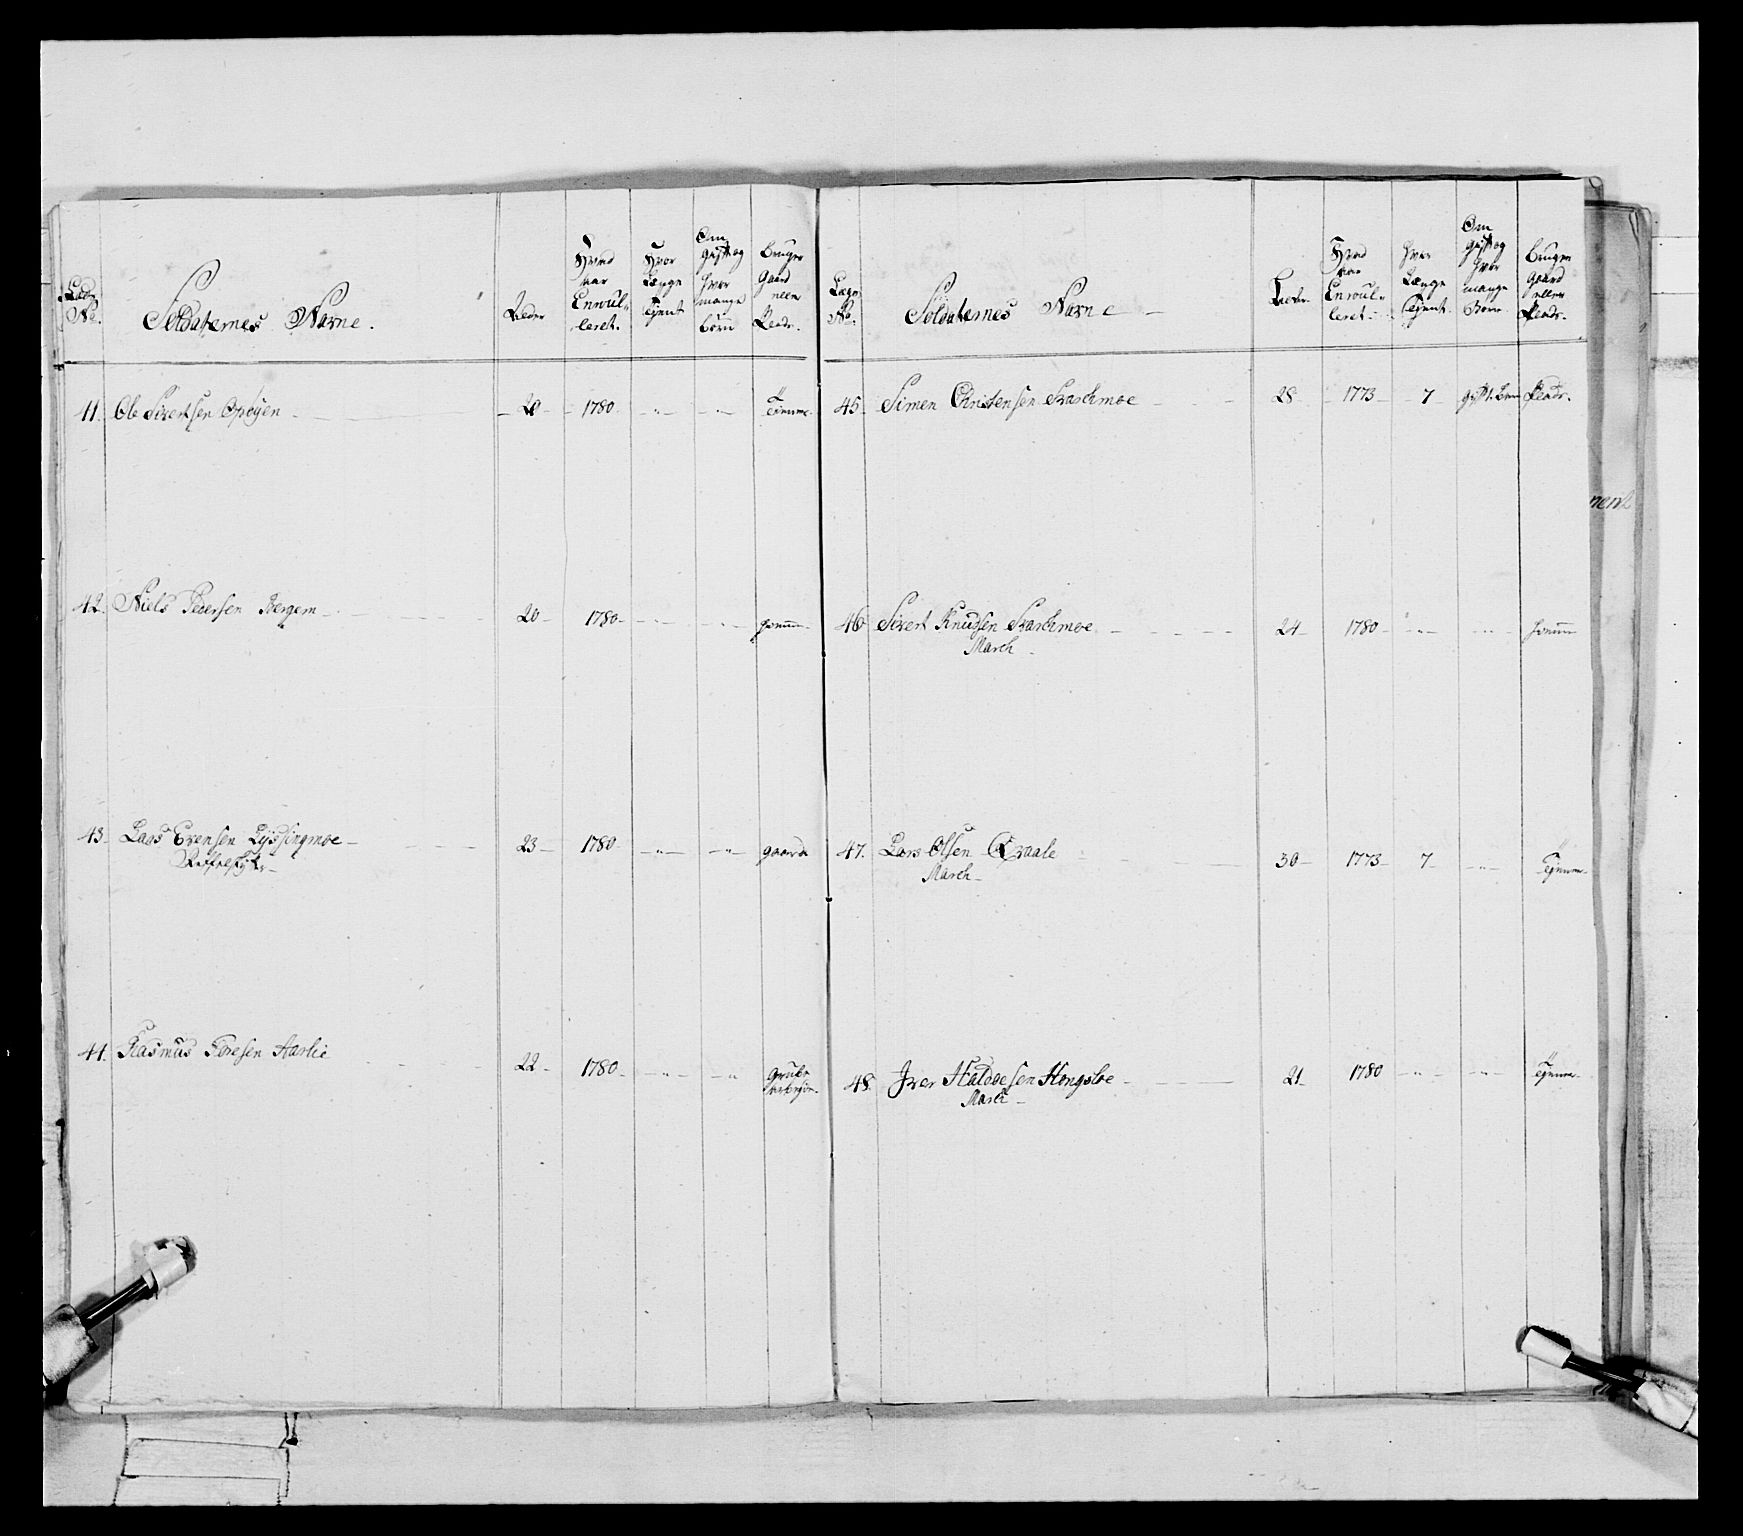 Lægs No.
Soldaternes Navne.
Alder
Hvad aar Enroulleret.
Hvor Længe Tient
Om gift og hvor mange børn
Bruger Gaard eller Pladz.
41. Ole Sivertsen Opøyen - 20 - 1780 - " - " - Tiennr.
42. Niels Pedersen Bergem - 20 - 1780 - " - " - hiemme
43. Lars Evensen Lyssingmoe - 23 - 1780 - " - " - gaard
44. Rasmus Toresen Aarlie 22 - 1780 - " - " Grube arbeyder
Lægs No.
Soldaternes Navne -
Alder
Hvad aar Enroulleret
Hvor Længe Tient.
Om gift og hvor mange Børn
Bruger Gaard eller Pladz.
45. Simen Christensen Svarthmoe - 28 - 1773 - 7 - gift 1. barn Pladz.
46 Sivert Knudsen Svarthmoe - 24 - 1780 - " - " - hiemme
March -
47. Lars Olsen Qvaale - 30 - 1773 - 7 - " - Tienner
March -
48. Iver Haldoesen Hongsloe - 21 - 1780 - " - " - Tienner
March -
ment